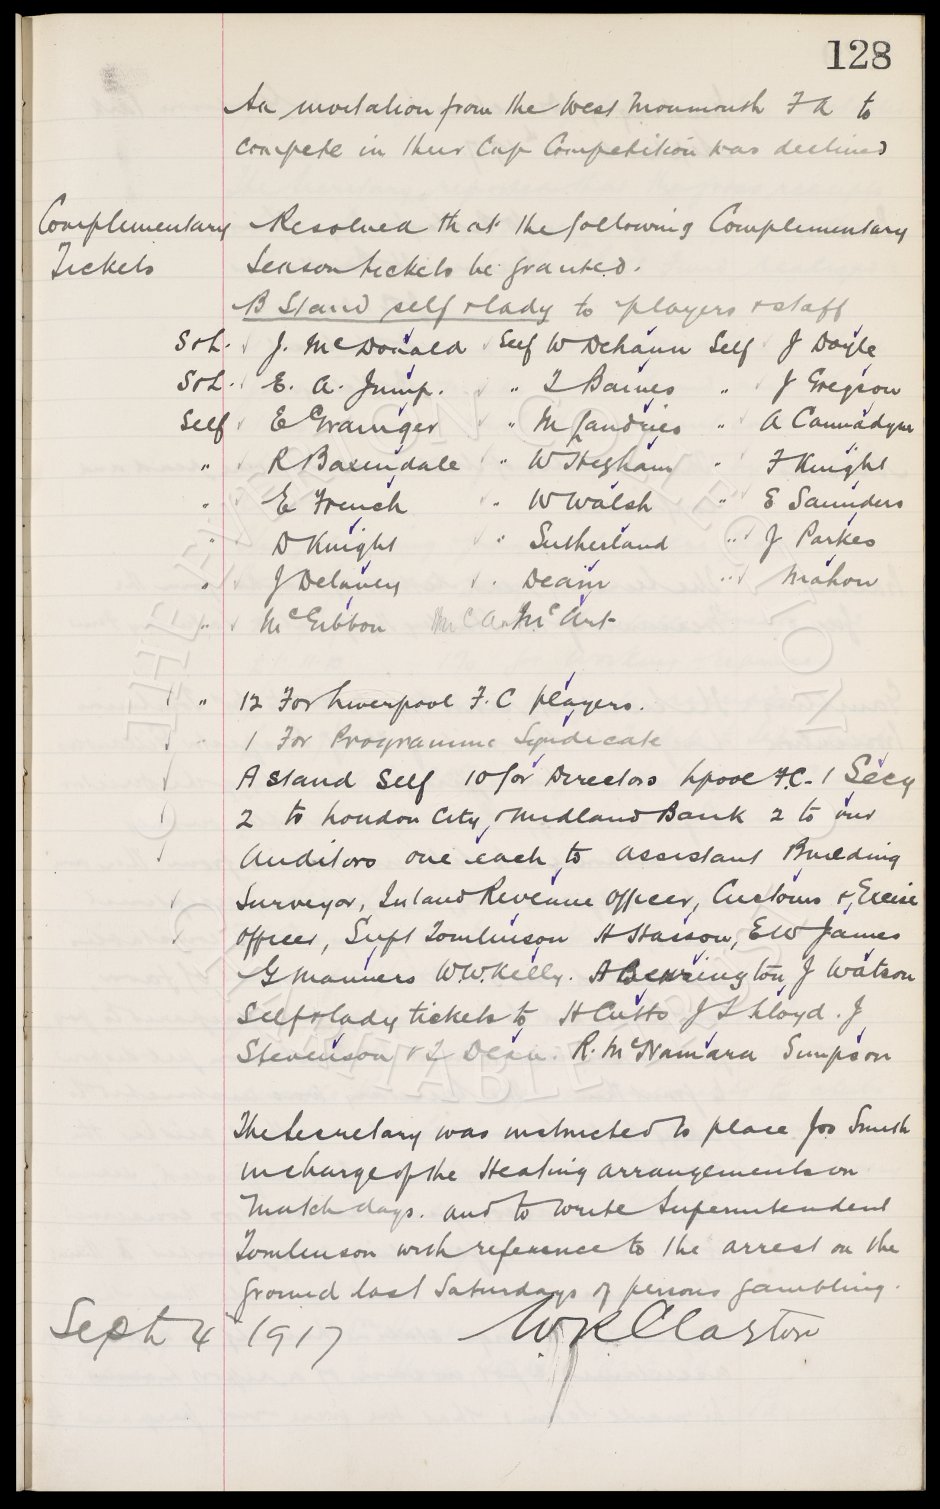 128
An invitation from the West Monmouth F A to
compete in their Cup Competition was declined
Complementary Tickets
Resolved that the following Complementary
Season tickets be granted.
B Stand self & lady to players & staff
S & L. J. McDonald Self W Dehaun Self J Doyle
S & L. E. A. Jump. " T Barnes " J Gregson
Self E Grainger " M Landries " A Cannadyne
" R Baxendale " W Higham " F Knight
" E French " W Walsh " E Saunders
" D Knight " Sutherland " J Parkes
" J Delaney " Deain " Mahon
" McGibbon McArt
" 12 For Liverpool F. C players.
" 1 For Programme Syndicate
A Stand Self 10 for Directors Lpool F.C. 1 Secy
2 to London City & Midland Bank 2 to our
Auditors one each to assistant Building
Surveyor, Inland Revenue Officer, Customs & Excise
Officer, Supt Tomlinson H Hasson, E W James
G Manners W.W. Kelly. A Berrington, J Watson
Self & lady tickets to H Cutts J L Lloyd. J
Stevenson & T Dean. R. McNamara Simpson
The Secretary was instructed to place Jos Smith
in charge of the Heating arrangements on
Match days. and to write Superintendent
Tomlinson with reference to the arrest on the
ground last Saturdays of persons gambling.
Sept 4 1917 W R Clayton
THE EVERTON COLLECTION CHARITABLE TRUST